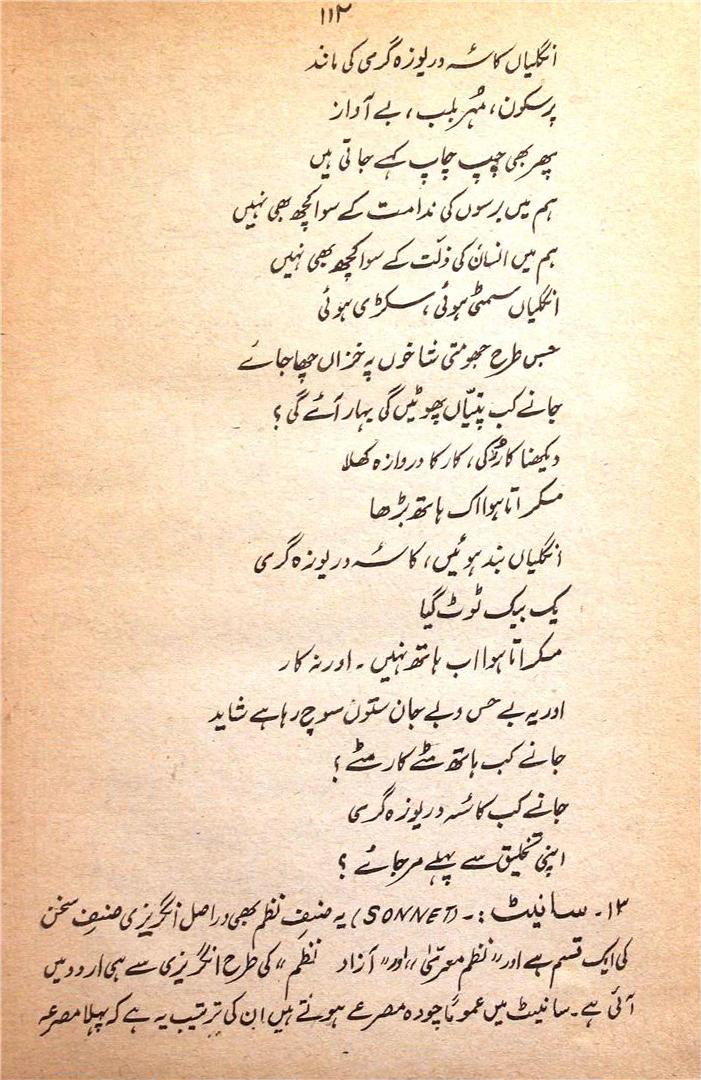 ۱۱۲
انگلیاں کاسۂ دریوزہ گری کی مانند
پرسکون، مُہر بلب، بے آواز
پھر بھی چپ چاپ کہے جاتی ہیں
ہم میں برسوں کی ندامت کے سوا کچھ بھی نہیں
ہم میں انسان کی ذلّت کے سوا کچھ بھی نہیں
انگلیاں سمٹی ہوئی، سکڑی ہوئی
جس طرح جھومتی شاخوں پہ خزاں چھا جائے
جانے کب پتیّاں پھوٹیں گی بہار آئے گی ؟
دیکھنا کار رُکی، کار کا دروازہ کھلا
مسکراتا ہوا اک ہاتھ بڑھا
انگلیاں بند ہوئیں، کاسۂ دریوزہ گری
یک بیک ٹوٹ گیا
مسکراتا ہوا اب ہاتھ نہیں ۔ اور نہ کار
اور یہ بے حس و بے جان ستون سوچ رہا ہے شاید
جانے کب ہاتھ مٹے کار مٹے ؟
جانے کب کاسۂ دریوزہ گری
اپنی تخلیق سے پہلے مر جائے ؟
۱۳۔ سانیٹ :۔ (SONNET) یہ صنفِ نظم بھی دراصل انگریزی صنفِ سخن
کی ایک قسم ہے اور "نظم معریّٰ" اور "آزاد نظم" کی طرح انگریزی سے ہی اردو میں
آئی ہے۔ سانیٹ میں عموماً چودہ مصرعے ہوتے ہیں ان کی ترتیب یہ ہے کہ پہلا مصرعہ